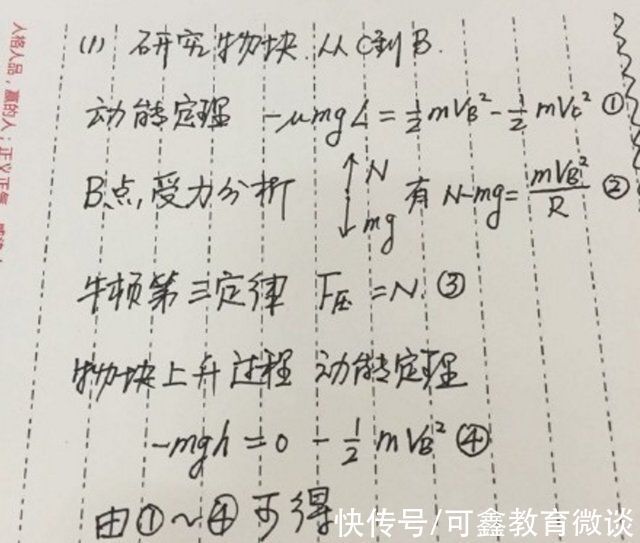 (1) 研究物块从C到B.
动能定理 -μmgL = ½mV_B² - ½mV_C² ①
B点,受力分析 ↑N ↓mg 有 N-mg = mV_B²/R ②
牛顿第三定律 F压 = N. ③
物块上升过程 动能定理
-mgh = 0 - ½mV_B² ④
由①~④可得
快传号/可鑫教育微谈
人格人品,赢的人;正义正气